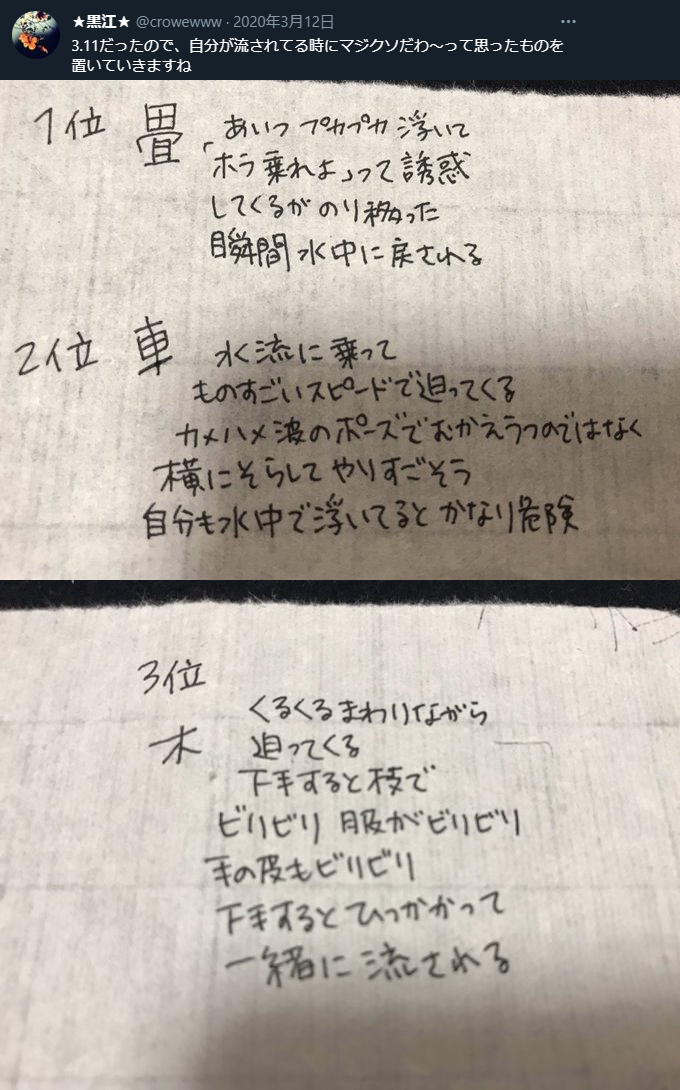 ★黒江★ @crowewww · 2020年3月12日 ···
3.11だったので、自分が流されてる時にマジクソだわ～って思ったものを
置いていきますね
1位 畳 あいつ プカプカ 浮いて
「ホラ乗れよ」って誘惑
してくるが のり移った
瞬間 水中に戻される
2位 車 水流に乗って
ものすごいスピードで迫ってくる
カメハメ波のポーズでむかえうつのではなく
横にそらして やりすごそう
自分も水中で浮いてると かなり危険
3位
くるくるまわりながら
木 迫ってくる
下手すると枝で
ビリビリ 服がビリビリ
手の皮もビリビリ
下手するとひっかかって
一緒に流される